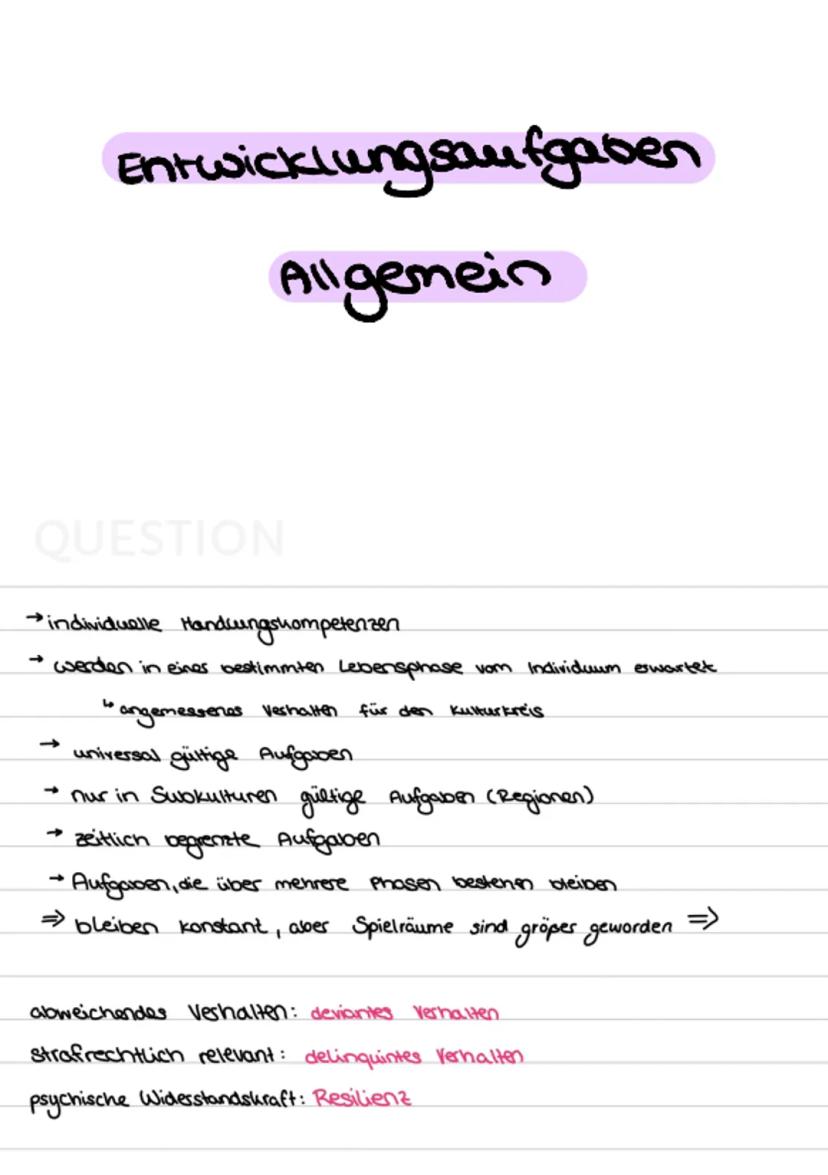 Entwicklungsaufgaben
Allgemein
QUESTION
→ individuelle Handlungskompetenzen
→ werden in einer bestimmten Lebensphase vom Individuum erwartet
↳ angemessenes Verhalten für den Kulturkreis
→ universal gültige Aufgaben
→ nur in Subkulturen gültige Aufgaben (Regionen)
→ zeitlich begrenzte Aufgaben
→ Aufgaben, die über mehrere Phasen bestehen bleiben
⇒ bleiben konstant, aber Spielräume sind größer geworden ⇒
abweichendes Verhalten: deviantes Verhalten
strafrechtlich relevant: delinquintes Verhalten
psychische Widerstandskraft: Resilienz